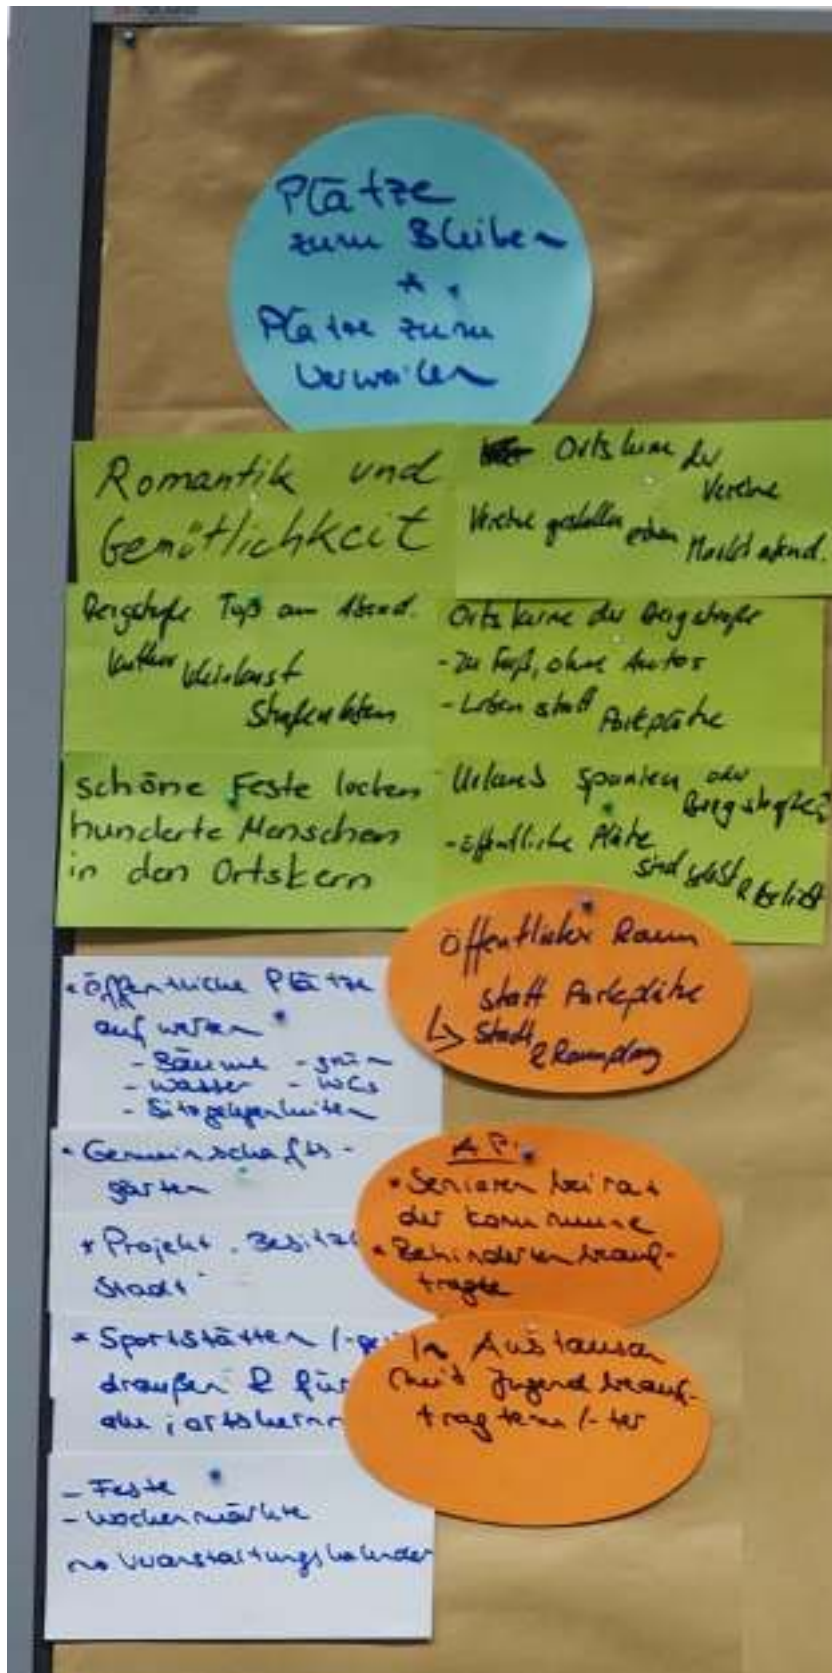 Plätze
zum Bleiben
* *
Plätze zum
Verweilen
Romantik und
Gemütlichkeit
Ortskerne der
Vereine
Vereine gestalten einen Marktabend.
Bergstraße am Abend.
Kultur Weinkunst
Straßenleben
Ortskerne der Bergstraße
- Zu Fuß, ohne Autos
- Leben statt Parkplätze
schöne Feste locken
hunderte Menschen
in den Ortskern
Urlaub Spanien oder
Bergstraße?
- öffentliche Plätze
sind & beliebt
öffentlicher Raum
statt Parkplätze
↳ Stadt
& Raumplang
• öffentliche Plätze
aufwerten
- Bäume - grün
- Wasser - WCs
- Sitzgelegenheiten
• Gemeinschafts-
garten
* Projekt "Besitz
Stadt"
* Sportstätten /-ge
draußen & für
alle; ortskern
AP:
* Seniorenbeirat
der Kommune
* Behindertenbeauf-
tragte
In Austausch
mit Jugendbeauf-
tragtem /-ter
- Feste
- Wochenmärkte
Veranstaltungskalender